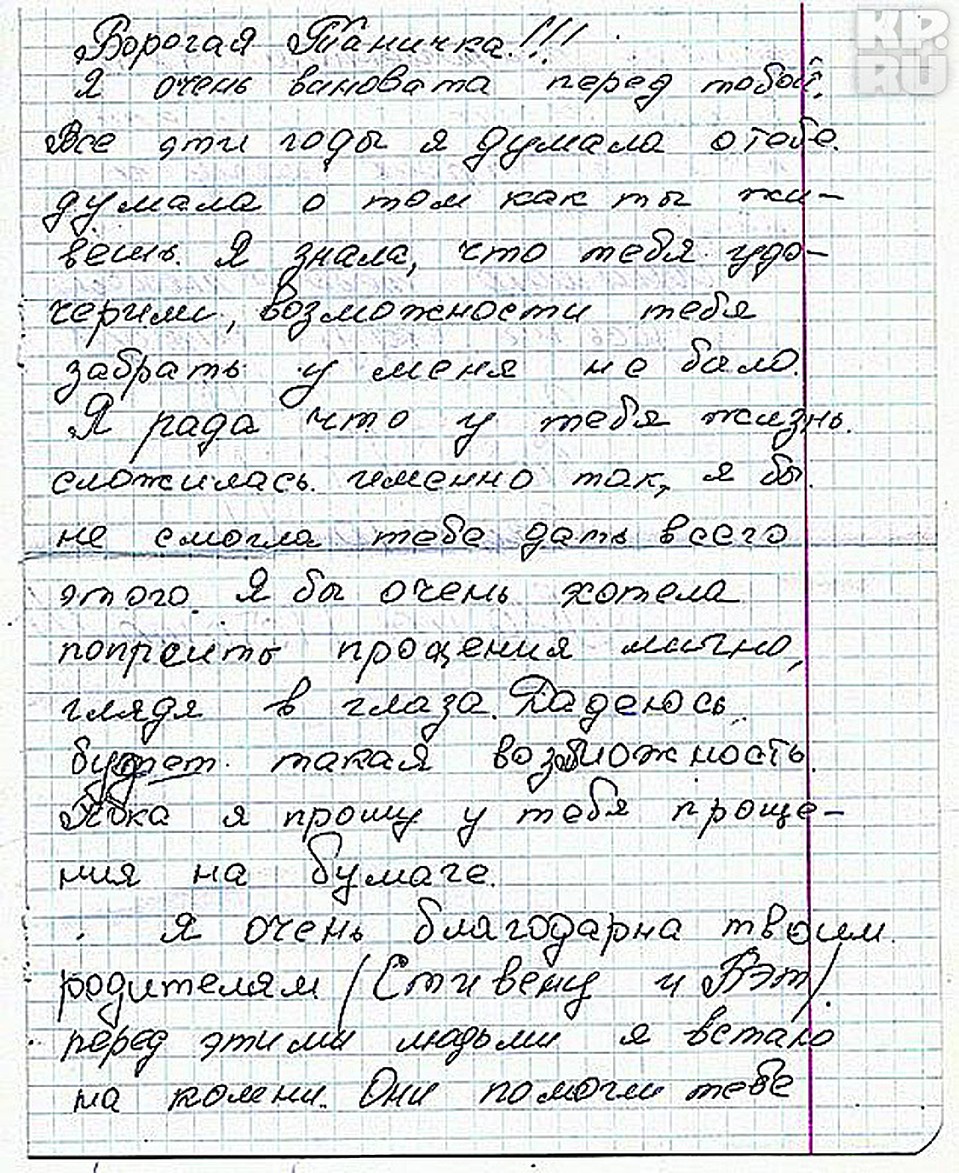 Дорогая Таничка!!!
Я очень виновата перед тобой.
Все эти годы я думала о тебе.
думала о том как ты жи-
вешь. Я знала, что тебя удо-
черили, возможности тебя
забрать у меня не было.
Я рада что у тебя жизнь
сложилась именно так, я бы
не смогла тебе дать всего
этого. Я бы очень хотела
попрсить прощения лично,
глядя в глаза. Надеюсь
будет такая возможность.
Пока я прошу у тебя проще-
ния на бумаге.
Я очень благодарна твоим
родителям (Стивену и Бэт)
перед этими людьми я встаю
на колени. Они помогли тебе
KP.
RU